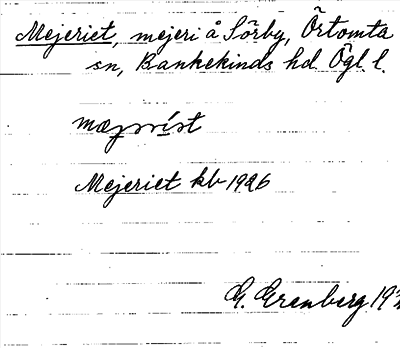 Mejeriet, mejeri å Sörby, Örtomta
sn, Bankekinds hd Ögl. l.
Mejeriet kb 1926
G. Grenberg 19